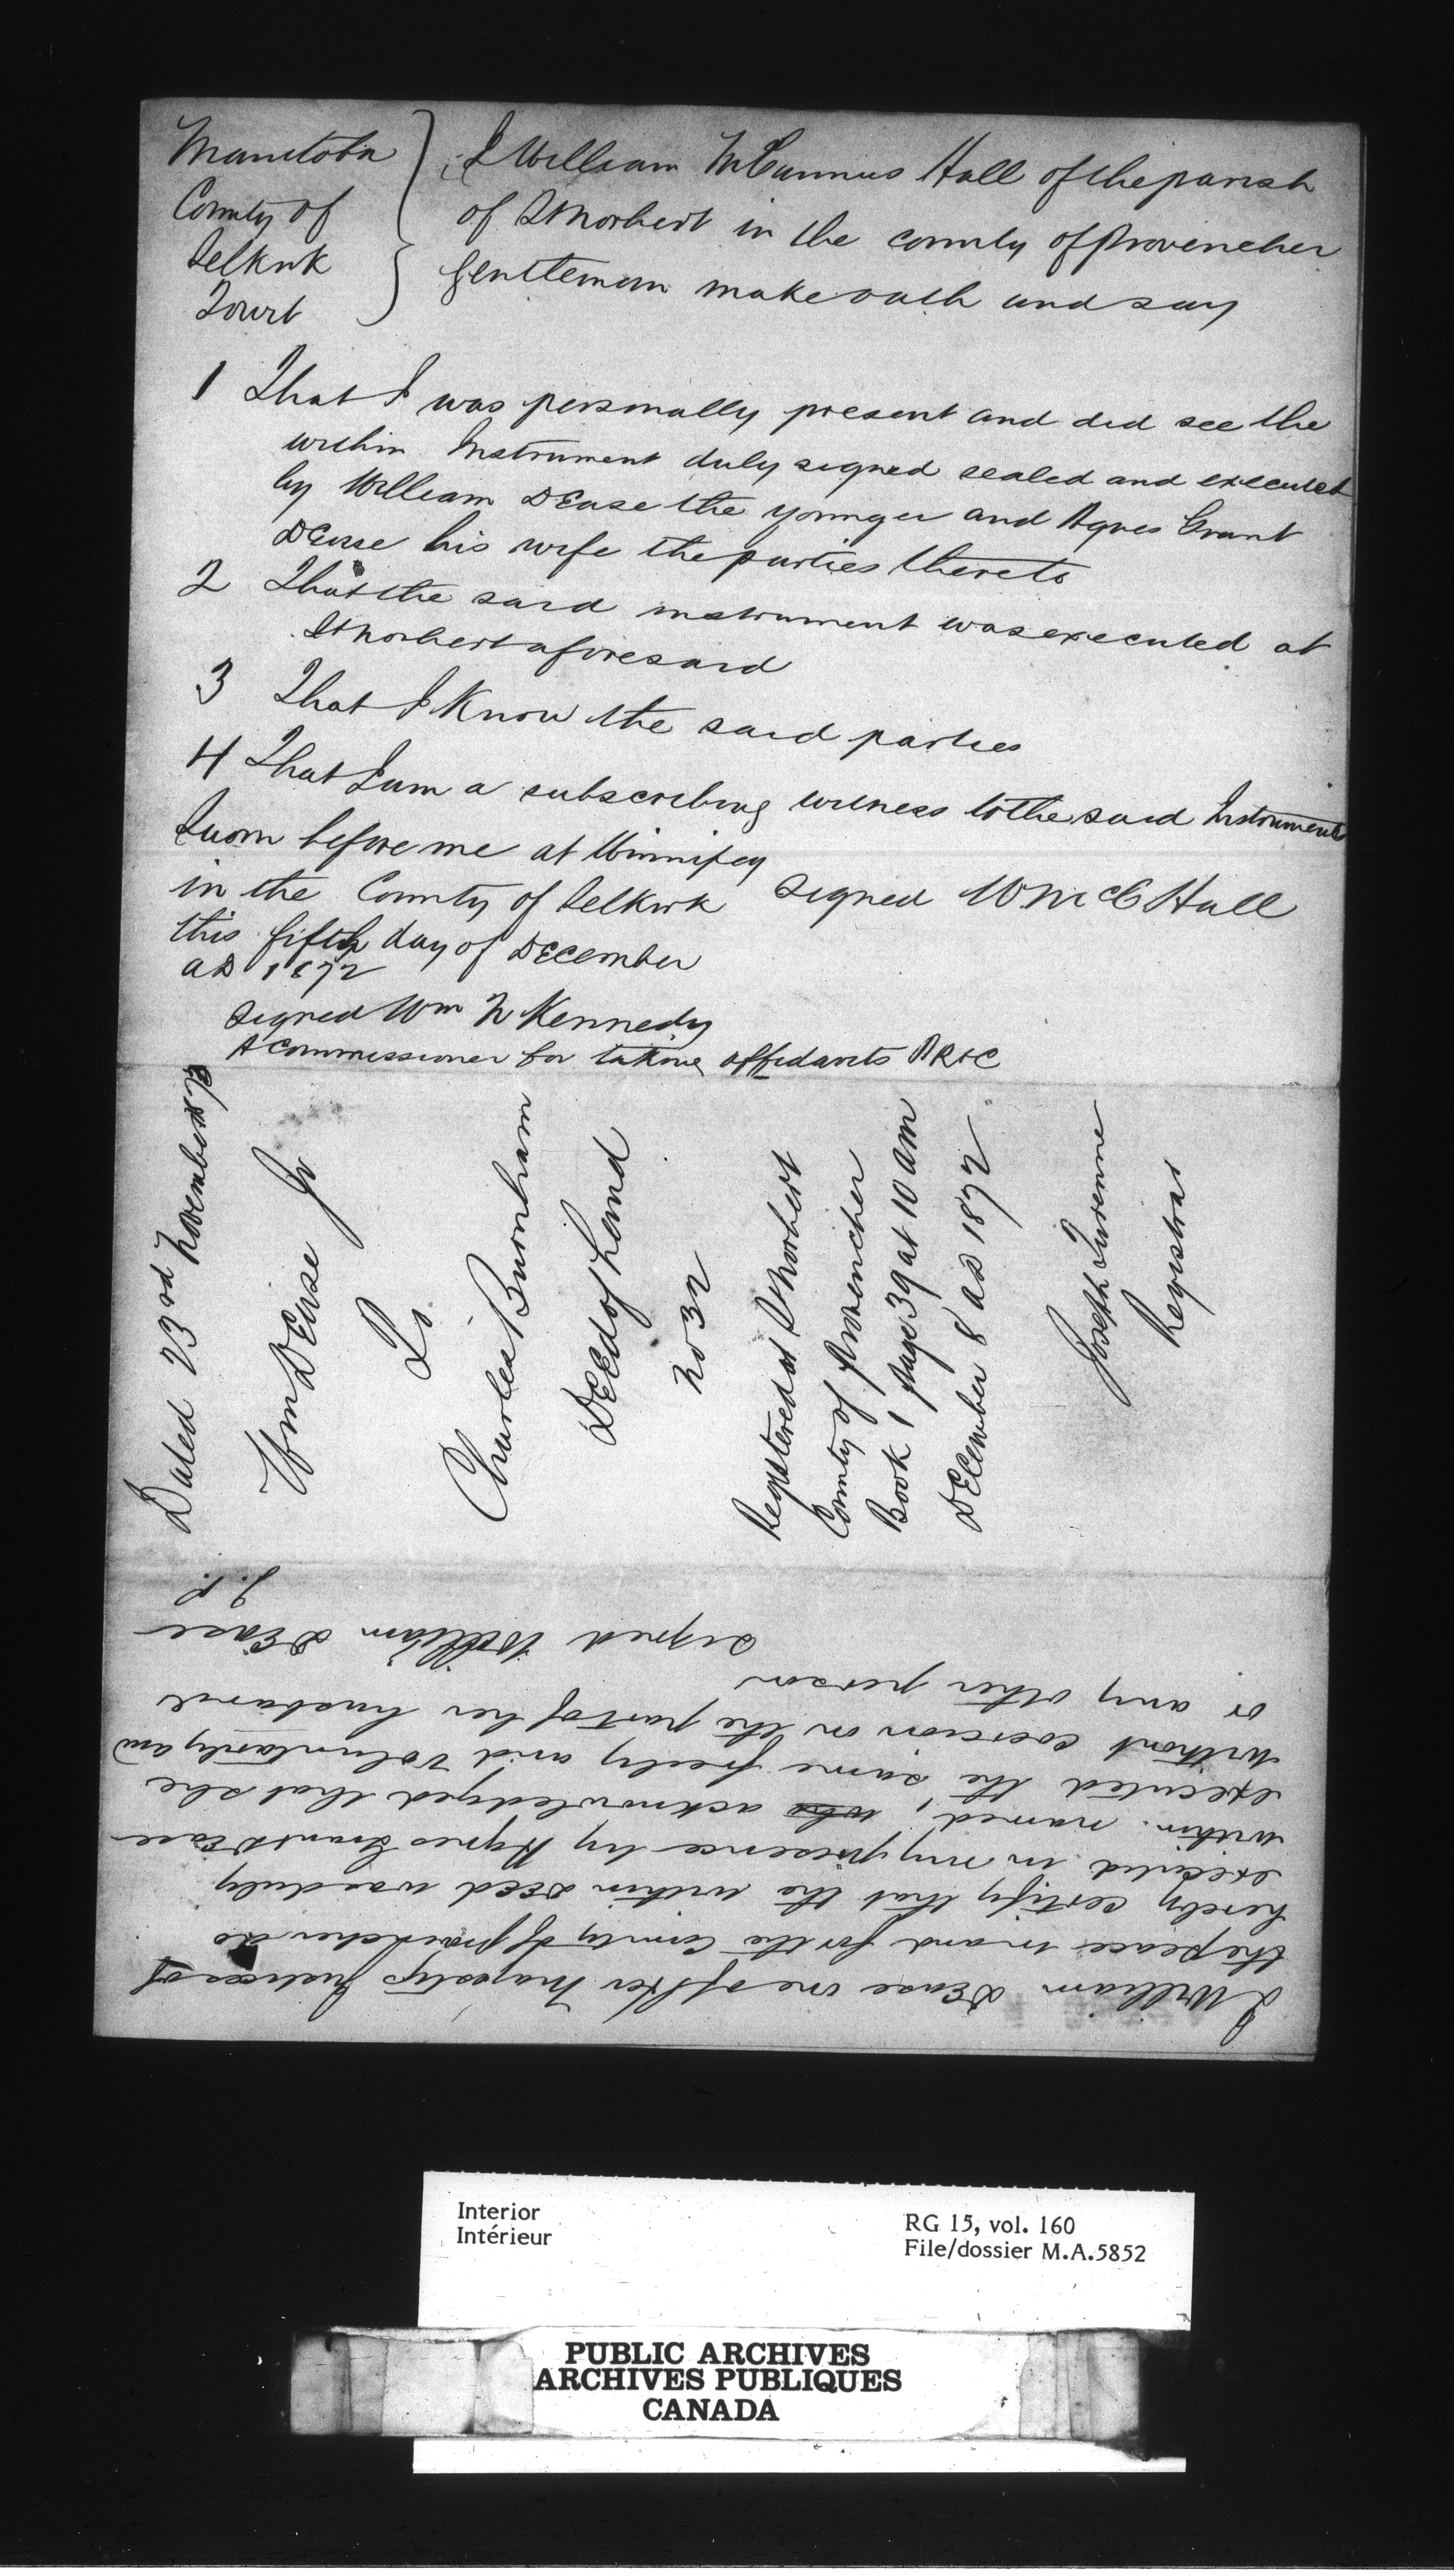 Manitoba
County of
Selkirk
To wit
I William McCunnus Hall of the parish
of St Norbert in the county of Provencher
Gentleman make oath and say
1 That I was personally present and did see the
within Instrument duly signed sealed and executed
by William DEase the younger and Agnes Grant
DEase his wife the parties thereto
2 That the said instrument was executed at
St Norbert aforesaid
3 That I Know the said parties
4 That I am a subscribing witness to the said Instrument
Sworn before me at Winnipeg
in the County of Selkirk
this fifth day of December
AD 1872
signed W McC Hall
signed Wm N Kennedy
A Commissioner for taking affidavits
Dated 23rd November
Wm DEase Jr
To
Charles Burnham
DEEd of Land
No 32
Registered at St Norbert
County of Provencher
Book 1 page 39 at 10 am
DEcember 8 AD 1872
Joseph Turenne
Registrar
I William DEase one of Her Majestys Justices of
the peace in and for the County of Provencher do
hereby certify that the within DEEd was duly
executed in my presence by Agnes Grant DEase
within named, who acknowledged that she
executed the same freely and voluntarily and
without coercion on the part of her husband
or any other person
signed William DEase
J.P.
Interior
Intérieur
RG 15, vol. 160
File/dossier M.A.5852
PUBLIC ARCHIVES
ARCHIVES PUBLIQUES
CANADA